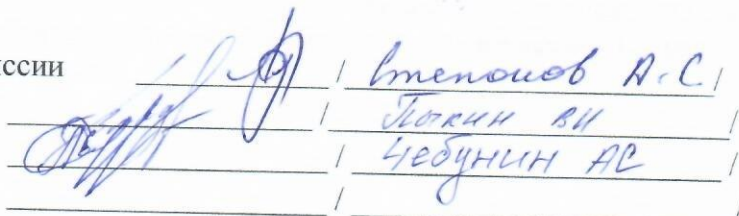 ссии / Степанов А.С. /
/ Пыкин ВИ /
/ Чебунин АС /
/ /